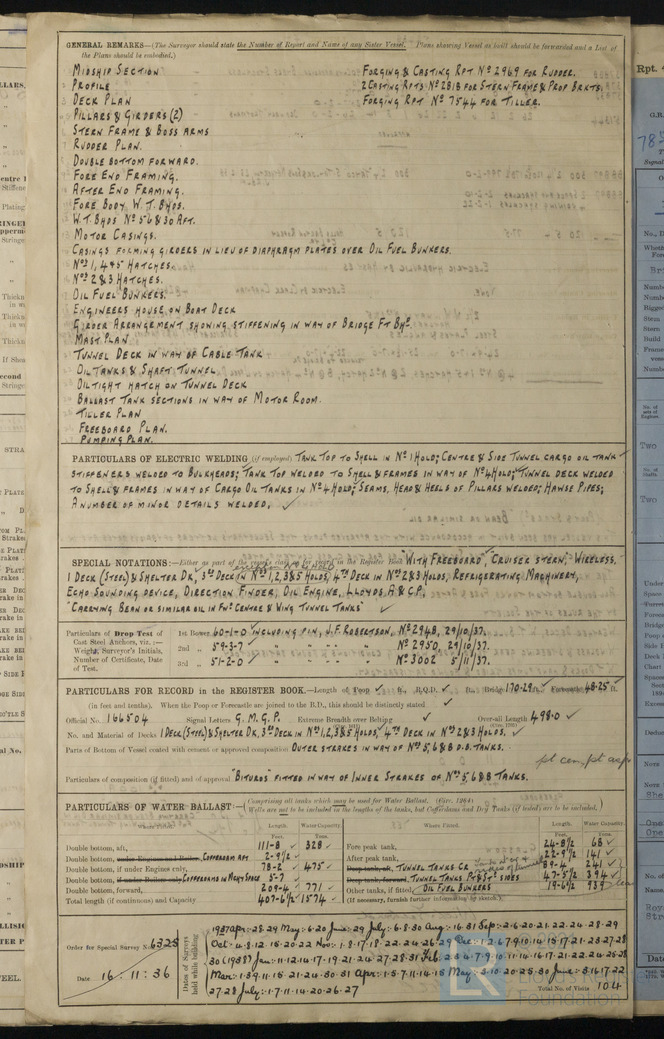 GENERAL REMARKS—(The Surveyor should state the Number of Report and Name of any Sister Vessel. Plans showing Vessel as built should be forwarded and a List of
the Plans should be embodied.)
MIDSHIP SECTION
FORGING & CASTING RPT Nº 2969 FOR RUDDER.
PROFILE
2 CASTING RPTS Nº 2818 FOR STERN FRAME & PROP BRKTS.
DECK PLAN
FORGING RPT Nº 7544 FOR TILLER.
PILLARS & GIRDERS (2)
STERN FRAME & BOSS ARMS
RUDDER PLAN.
DOUBLE BOTTOM FORWARD.
FORE END FRAMING.
AFTER END FRAMING.
FORE BODY W.T. BHDS.
W.T. BHDS Nº 5 6 & 30 AFT.
MOTOR CASINGS.
CASINGS FORMING GIRDERS IN LIEU OF DIAPHRAGM PLATES OVER OIL FUEL BUNKERS.
Nºs 1, 4 & 5 HATCHES.
Nºs 2 & 3 HATCHES.
OIL FUEL BUNKERS.
ENGINEERS HOUSE ON BOAT DECK
GIRDER ARRANGEMENT SHOWING STIFFENING IN WAY OF BRIDGE FT BHD.
MAST PLAN
TUNNEL DECK IN WAY OF CABLE TANK
OIL TANKS & SHAFT TUNNEL
OILTIGHT HATCH ON TUNNEL DECK
BALLAST TANK SECTIONS IN WAY OF MOTOR ROOM.
TILLER PLAN
FREEBOARD PLAN.
PUMPING PLAN.
PARTICULARS OF ELECTRIC WELDING (if employed) TANK TOP TO SHELL IN Nº 1 HOLD; CENTRE & SIDE TUNNEL CARGO OIL TANK
STIFFENERS WELDED TO BULKHEADS; TANK TOP WELDED TO SHELL & FRAMES IN WAY OF Nº 4 HOLD; TUNNEL DECK WELDED
TO SHELL & FRAMES IN WAY OF CARGO OIL TANKS IN Nº 4 HOLD; SEAMS, HEAD & HEELS OF PILLARS WELDED; HAWSE PIPES;
A NUMBER OF MINOR DETAILS WELDED.
SPECIAL NOTATIONS:—Either as part of the in the Register Book "WITH FREEBOARD", CRUISER STERN, WIRELESS,
1 DECK (STEEL) & SHELTER DK, 3RD DECK IN Nºs 1, 2, 3 & 5 HOLDS, 4TH DECK IN Nºs 2 & 3 HOLDS, REFRIGERATING MACHINERY,
ECHO SOUNDING DEVICE, DIRECTION FINDER, OIL ENGINE, LLOYDS A & C.P.
"CARRYING BEAN OR SIMILAR OIL IN FWD CENTRE & WING TUNNEL TANKS"
Particulars of Drop Test of
Cast Steel Anchors, viz.:—
Weight, Surveyor's Initials,
Number of Certificate, Date
of Test.
1st Bower 60-1-0 INCLUDING PIN, J.F. ROBERTSON, Nº 2948, 29/10/37.
2nd " 59-3-7 " " " Nº 2950, 29/10/37.
3rd " 51-2-0 " " " Nº 3002 5/11/37.
PARTICULARS FOR RECORD in the REGISTER BOOK.—Length of Poop ft., R.Q.D. ft., Bridge 170·29 ft., Forecastle 48·25 ft.
(in feet and tenths). When the Poop or Forecastle are joined to the B.D., this should be distinctly stated
Official No. 166504 Signal Letters G. M. G. P. Extreme Breadth over Belting Over-all Length 498·0
No. and Material of Decks 1 DECK (STEEL) & SHELTER DK, 3RD DECK IN Nºs 1, 2, 3 & 5 HOLDS, 4TH DECK IN Nºs 2 & 3 HOLDS.
Parts of Bottom of Vessel coated with cement or approved composition OUTER STRAKES IN WAY OF Nºs 5, 6 & 8 D.B. TANKS.
Particulars of composition (if fitted) and of approval "BITUROS" FITTED IN WAY OF INNER STRAKES OF Nºs 5, 6 & 8 TANKS.
PARTICULARS OF WATER BALLAST:—(Comprising all tanks which may be used for Water Ballast.
Wells are not to be included in the lengths of the tanks, but Cofferdams and Dry Tanks (if tested) are to be included.)
Where Fitted. Length. Water Capacity. Where Fitted. Length. Water Capacity.
Feet. Tons. Feet. Tons.
Double bottom, aft, 111-8 328 Fore peak tank, 24-8½ 68
Double bottom, COFFERDAM AFT 2-9½ After peak tank, 22-9½ 141
Double bottom, if under Engines only, 78-2 475 TUNNEL TANKS CR 89-4 241
Double bottom, COFFERDAMS IN MACY SPACE 5-7 TUNNEL TANKS PT & ST SIDES 47-5½ 394
Double bottom, forward, 209-4 771 Other tanks, if fitted, OIL FUEL BUNKERS 19-6½ 939
Total length (if continuous) and Capacity 407-6½ 1574 (If necessary, furnish further information by sketch.)
Order for Special Survey No. 6325
Date 16 · 11 · 36
Dates of Surveys held while building
1937 Apr: 28·29 May: 6·20 June: 29 July: 6·8·30 Aug: 16·31 Sep: 2·6·20·21·22·24·28·29
Oct: 4·8·12·15·20·22 Nov: 1·8·17·18·22·24·26·29 Dec: 1·2·6·7·9·10·14·15·17·21·23·27·28
30 (1938) Jan: 11·12·14·17·19·21·24·27·28·31 Feb: 2·3·4·7·9·10·11·14·16·17·21·22·24·25·28
Mar: 1·3·9·11·15·21·24·30·31 Apr: 1·5·7·11·14·15 May: 3·10·20·25·30 June: 3·16·17·22
27·28 July: 1·7·11·14·20·26·27
Total No. of Visits 104